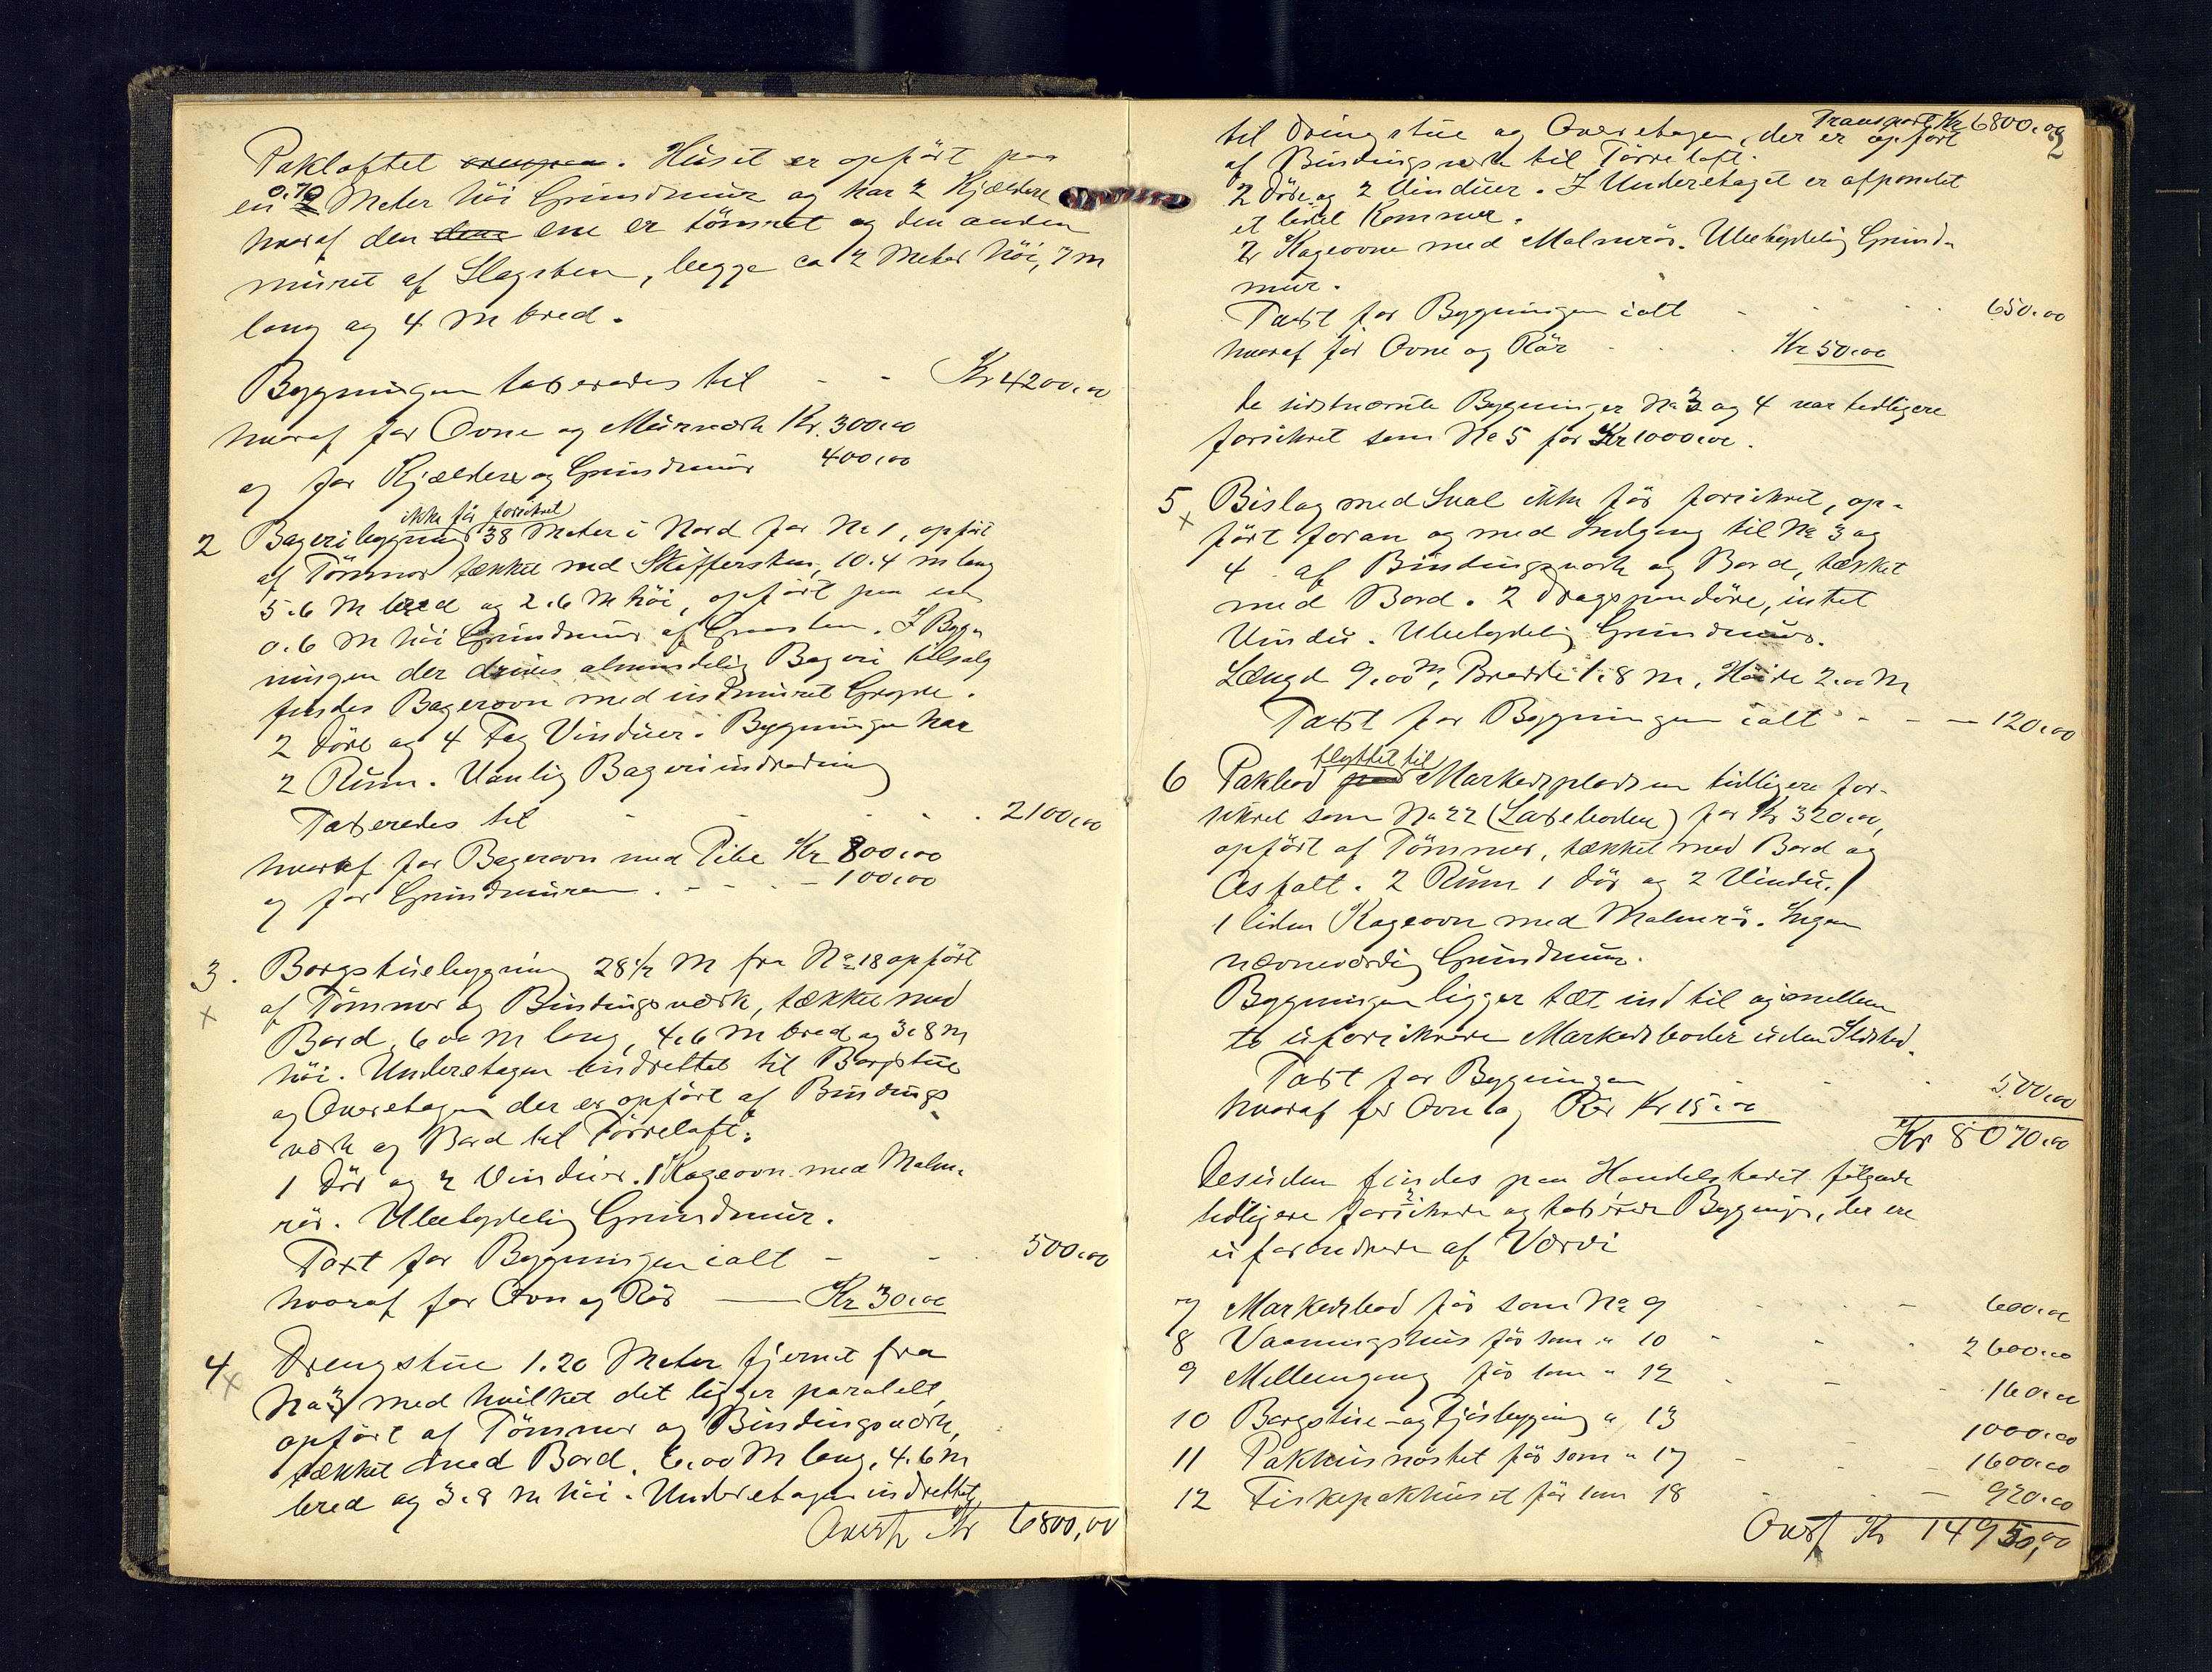 Pakloftet. Huset er opført paa
en 0.70 Meter høi Grundmur og har 2 Kjældere
hvoraf den ene er tømret og den anden
muret af Slagsten, begge ca 2 Meter høi, 7 m
lang og 4 m bred.
Bygningen taxeredes til - - Kr 4200,00
hvoraf for Ovne og Murværk Kr. 300,00
og for Kjældere og Grundmur 400,00
ikke før forsikret
2 Bageribygning 38 Meter i Nord for No 1, opført
af Tømmer tækket med Skiffersten, 10.4 m lang
5.6 M bred og 2.6 M høi, opført paa en
0.6 M høi Grundmur af Graasten. I Byg-
ningen der drives almindelig Bageri tilsalg
findes Bagerovn med indmuret Gryde.
2 Döre og 4 Fag Vinduer. Bygningen har
2 Rum. Vanlig Bageriindredning
Taxeredes til - - - - 2100,00
hvoraf for Bagerovn med Pibe Kr 800,00
og for Grundmuren - - - 100,00
3. Borgstuebygning 28 1/2 M fra No 18 opført
x af Tømmer og Bindingsværk, tækket med
Bord, 6,00 M lang, 4,6 M bred og 3,8 m
høi. Underetagen indrettet til Borgstue
og Overetagen der er opført af Bindings
værk og Bord til Tørreloft.
1 Dör og 2 Vinduer. 1 Kageovn med Malm-
rör. Ubetydelig Grundmur.
Taxt for Bygningen ialt - - 500,00
hvoraf for Ovn og Rör — Kr 30,00
4 Drengstue 1.20 Meter fjernet fra
x No 3 med hvilket det ligger paralelt,
opført af Tømmer og Bindingsværk,
tækket med Bord. 6,00 M lang, 4.6 m
bred og 3.8 m høi. Underetagen indrettet
Overf Kr 6800,00
Transport Kr 6800,00
2
til Drengstue og Overetagen, der er opført
af Bindingsverk til Tørreloft.
2 Döre og 2 Vinduer. I Underetaget er afpanelet
et lidet Kammer.
2 Kageovne med Malmrör. Ubetydelig Grund-
mur.
Taxt for Bygningen ialt - - - 650,00
hvoraf for Ovne og Rör - - Kr 50,00
De sidstnævnte Bygninger No 3 og 4 var tidligere
forsikret som No 5 for Kr 1000,00.
5 Bislag med Sval ikke før forsikret, op-
x ført foran og med Indgang til No 3 og
4 af Bindingsværk og Bord, tækket
med Bord. 2 Dragspændöre, intet
Vindu. Ubetydelig Grundmur.
Længde 9,00 m, Bredde 1,8 m, Høide 2,00 M
Taxt for Bygningen ialt - - - 120,00
flyttet til
6 Pakbod Markedspladsen tidligere for-
sikret som No 22 (Laxeboden) for Kr 320,00,
opført af Tømmer, tækket med Bord og
Asfalt. 2 Rum 1 Dör og 2 Vindu.
1 liden Kageovn med Malmrör. Ingen
nævneværdig Grundmur.
Bygningen ligger tæt ind til og mellem
to uforsikrede Markedsboder uden Ildsted.
Taxt for Bygningen - - - 500,00
hvoraf for Ovn og Rör Kr 15,00
Kr 8070,00
Desuden findes paa Handelstedet følgende
tidligere forsikrede og taxerede Bygninger, der ere
uforandrede af Værdi
7 Markedsbod før som No 9 - - 600,00
8 Vaaningshus før som " 10 - - - 2600,00
9 Mellemgang før som " 12 - - - 160,00
10 Borgstue- og Fjøsbygning " 13 - 1000,00
11 Pakhusnøstet før som " 17 - - - 1600,00
12 Fiskepakhuset før som 18 - - 920,00
Overf Kr 14950,00